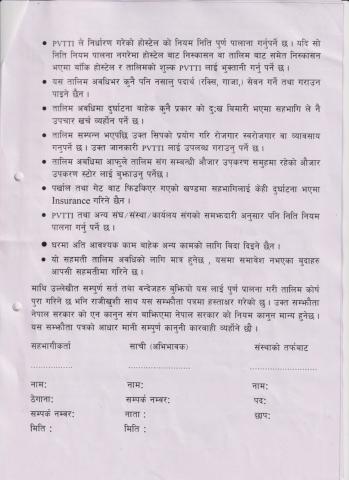 • PVTTI ले निर्धारण गरेको होस्टेल को नियम निति पुर्ण पालाना गर्नुपर्ने छ । यदि सो
निति नियम पालना नगरेमा होस्टेल बाट निस्कासन वा तालिम बाट समेत निस्कासन
भएमा बाँकि होस्टेल र तालिमको शुल्क PVTTI लाई भुक्तानी गर्नु पर्ने छ ।
• यस तालिम अवधिभर कुनै पनि नसालु पदार्थ (रक्सि, गाजा,) सेवन गर्ने तथा गराउन
पाइने छैन ।
• तालिम अवधिमा दुर्घाटना बाहेक कुनै प्रकार को दुःख बिमारी भएमा सहभागि ले नै
उपचार खर्च व्यर्होन पर्ने छ ।
• तालिम सम्पन्न भएपछि उक्त सिपको प्रयोग गरि रोजगार स्वरोजगार वा व्यावसाय
गनुपर्ने छ । उक्त जानकारी PVTTI लाई उपलब्ध गराउनु पर्ने छ ।
• तालिम अवधिमा आफुले तालिम संग सम्बन्धी औजार उपकरण समुहमा रहेको औजार
उपकरण स्टोर लाई बुझाउनु पर्नेछ ।
• पर्खाल तथा गेट बाट फिटकिएर गएको खण्डमा सहभागिलाई केही दुर्घाटना भएमा
Insurance गरिने छैन ।
• PVTTI तथा अन्य संघ/संस्था/कार्यलय संगको समझदारी अनुसार पनि निति नियम
पालना गर्नु पर्ने छ ।
• घरमा अति आवश्यक काम बाहेक अन्य कामको लागि बिदा दिइने छैन ।
• यो सहमती तालिम अवधिको लागि मात्र हुनेछ , यसमा समावेश नभएका बुदाहरु
आपसी सहमतीमा गरिने छ ।
माथि उल्लेखीत सम्पुर्ण सर्त तथा बन्देजहरु बुझियो यस लाई पुर्ण पालना गरी तालिम कोर्ष
पुरा गरिने छ भनि राजीखुशी साथ यस सम्झौता पत्रमा हस्ताक्षर गरेको छु । उक्त सम्झौता
नेपाल सरकार को एन कानुन संग बाझिएमा नेपाल सरकार को नियम कानुन मान्य हुनेछ ।
यस सम्झौता पत्रको आधार मानी सम्पुर्ण कानुनी कारवाही व्यर्होने छौ ।
सहभागीकर्ता साची (अभिभावक) संस्थाको तर्फबाट
........................ ........................ ........................
नाम: नाम: नाम:
ठेगाना: सम्पर्क नम्बर: पद:
सम्पर्क नम्बर: नाता : छाप:
मिति : मिति :